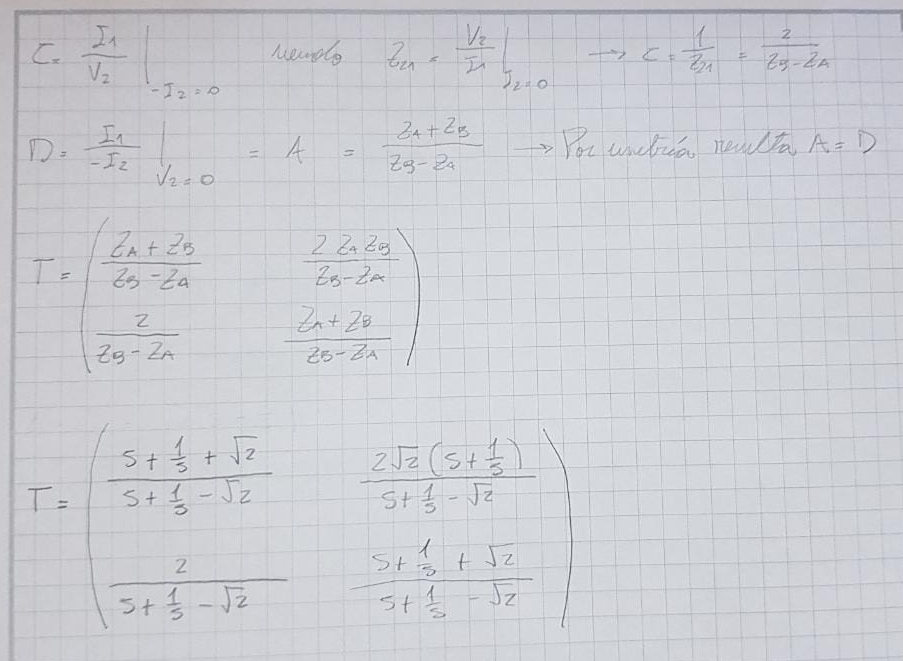 C = I1/V2 |-I2=0 siendo Z21 = V2/I1 |I2=0 → C = 1/Z21 = 2/(ZB-ZA)
D = I1/-I2 |V2=0 = A = (ZA+ZB)/(ZB-ZA) → Por simetría resulta A = D
T = ( (ZA+ZB)/(ZB-ZA) 2 ZA ZB/(ZB-ZA)
2/(ZB-ZA) (ZA+ZB)/(ZB-ZA) )
T = ( (S+1/S+√2)/(S+1/S-√2) 2√2(S+1/S)/(S+1/S-√2)
2/(S+1/S-√2) (S+1/S+√2)/(S+1/S-√2) )